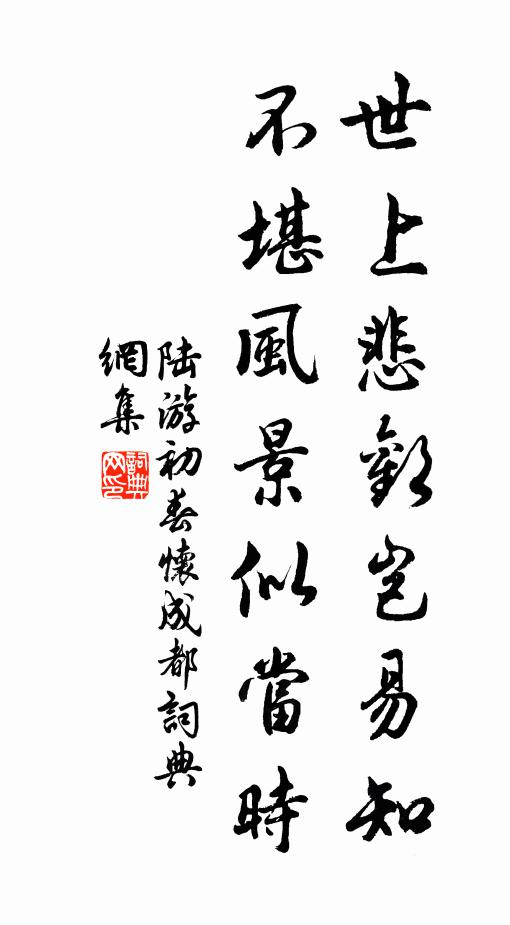 世上悲歡豈易知
不堪風景似當時
陆游初春懷成都詞典
網集
詞典網印